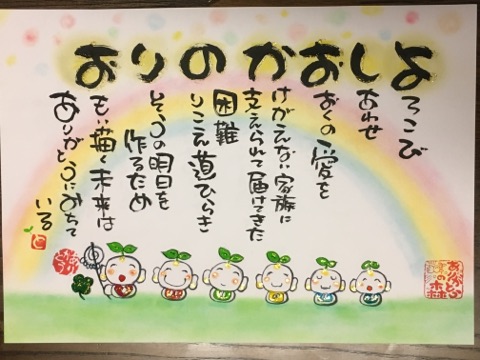 よしおかのりお
ろこび
あわせ
おくの愛を
けがえない家族に
支えられて届けてきた
困難
りこえ道ひらき
そうの明日を
作るため
もい描く未来は
ありがとうにみちて
いる
ありがとう